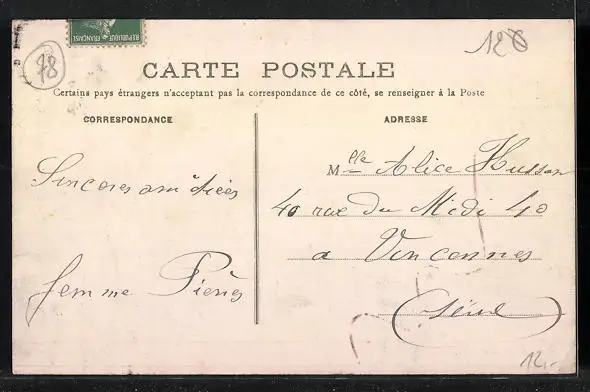 REPUBLIQUE FRANÇAISE
78
12
CARTE POSTALE
Certains pays étrangers n'acceptant pas la correspondance de ce côté, se renseigner à la Poste
CORRESPONDANCE
Sincères amitiées
femme Pierès
ADRESSE
Mlle Alice Husson
40 rue du Midi 40
a Vincennes
(Seine)
12.-